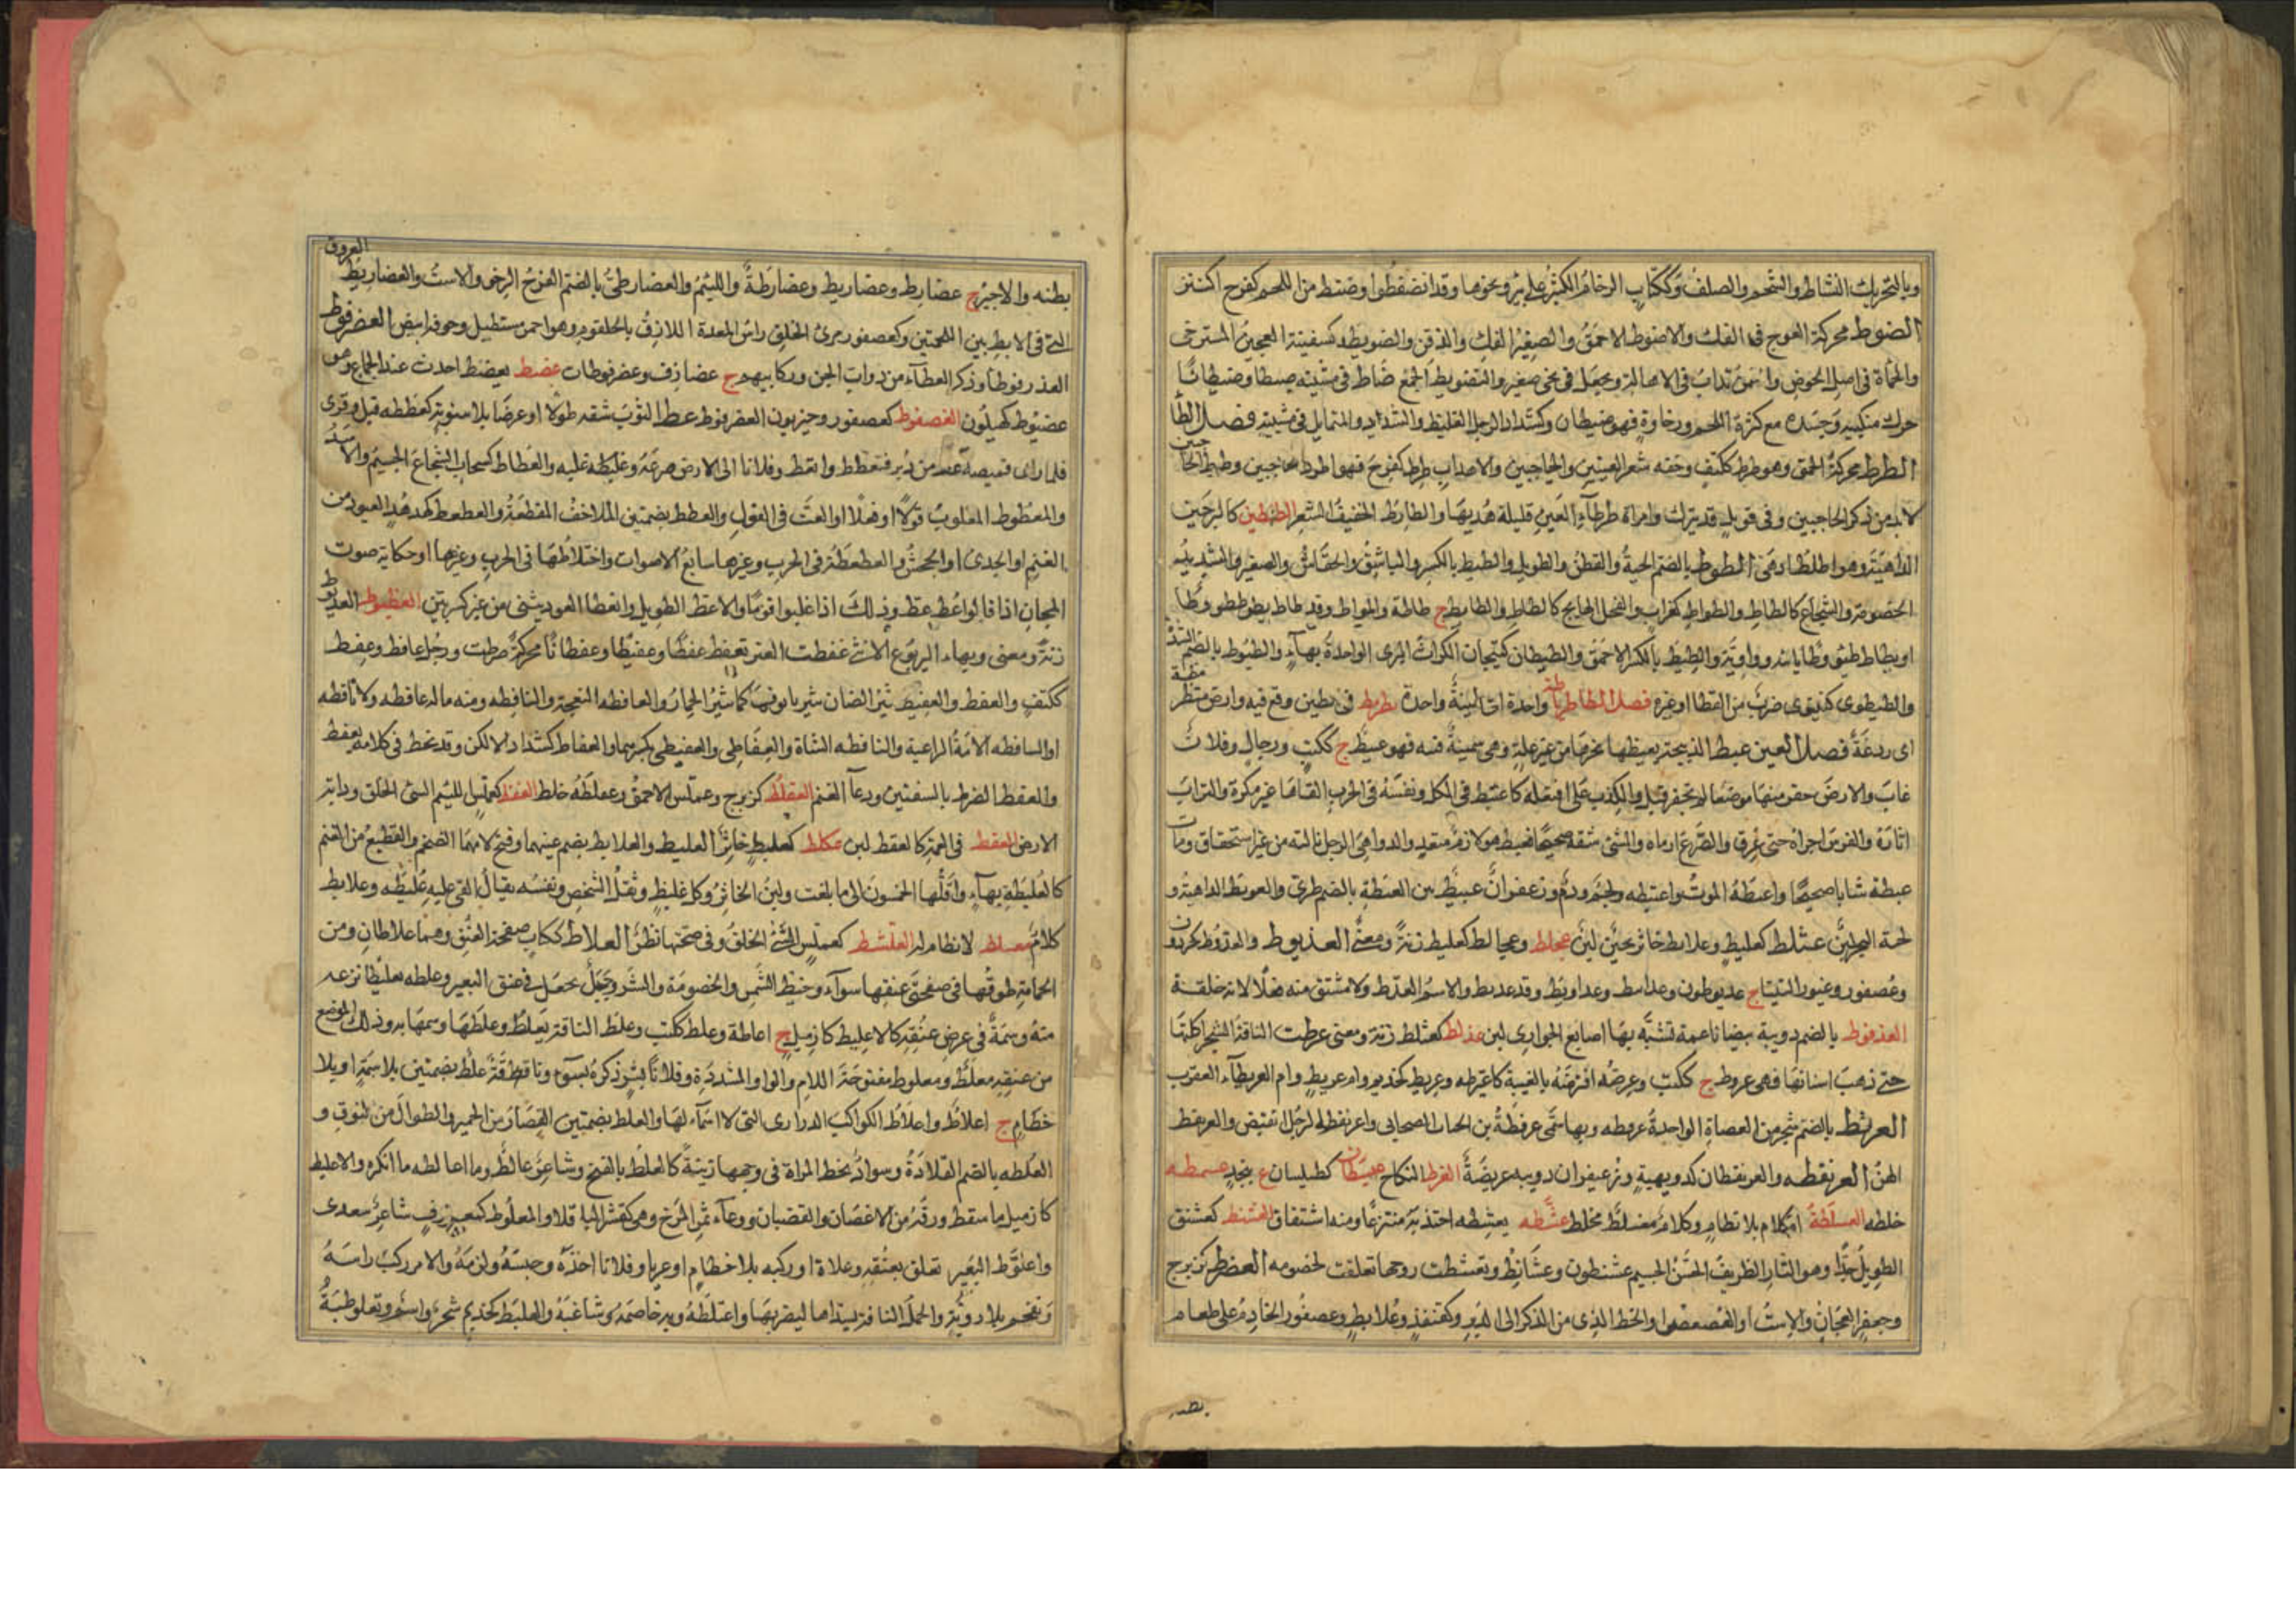 وبالتحريك النشاط والشحم والصلف وككتاب الزحام الكثير على بئر ونحوها وقد انضفطوا وضنط من اللحم كفرح اكتنز
الضوط محركة العوج في الفك والاضوط الاحمق والصغير الفك والذقن والضويطة كسفينة العجين المسترخي
والحمأة في اصل الحوض وسمن يذاب في الاهالة ويجعل في نحي صغير والتضويط الجمع ضاط في مشيته ضيطا وضيطانا
حرك منكبيه وجسده مع كثرة اللحم ورخاوة فهو ضيطان وكشداد الرجل الغليظ والشداد والمتمايل في مشيته فصل الطا
الطرط محركة الحمق وهو طرط ككتف وخفه شعر العينين والحاجبين والاهداب طرط كفرح فهو اطرط الحاجبين وطرط الحاجبين
لابد من ذكر الحاجبين وفي قويل قد يترك وامراة طرطآء العين قليلة هدبها والطارط الخفيف الشعر
الداهية الطوط بالضم الحية والقطن والطويل والطيط بالكسر والباشق والخفاش والصغير والشديد
الخصومة والشجاع كالطاط والطواط كغراب والفحل الهايج كالطاط والطايط ج طاطة واطواط وقد طاط يطوط طووطا
والطيطوى كنينوى ضرب من القطا او غيره فصل الظا واحدة
اى ردغة فصل العين عبط الذبيحة يعبطها نحرها من غير علة وهي سمينة فتية فهو عبيط ج ككتب ورجال وفلان
غاب والارض حفر منها موضعا لم يحفر قبل والكذب على افتعله كاعتبط في الكل ونفسه في الحرب القاها غير مكره والتراب
اثاره والفرس اجراه حتى عرق والضرع ادماه والشئ شقه صحيحا فعبط هو لازم متعد والدواهي الرجل نالته من غير استحقاق ومات
عبطة شابا صحيحا واعبطه الموت واعتبطه ولحم ودم وزعفران عبيط بين العبطة بالضم طري والعوبط الداهية و
لجة البحر لبن عثلط كعلبط وعلابط خاثر ثخين لبن عجلط وعجالط كعلبط زنة ومعنى العذيوط والعذوط كحردون
وعصفور وعتور التيتاء ج عذيوطون وعذاييط وعذاويط وقد عذيط والاسم العذط ولا مشتق منه فعلا لانه خلقة
العذفوط بالضم دويبة بيضا ناعمة تشبه بها اصابع الجوارى لبن عذلط كعثلط زنة ومعنى عرطت الناقة الشجر اكلتها
حتى ذهب اسنانها فهي عروط ج ككتب وعرضه اقترضه بالغيبة كاعترطه وعريط كحذيم وام عريط وام العريطاء العقرب
العرفط بالضم شجر من العضاه الواحدة عرفطة وبها سمي عرفطة بن الحباب الصحابي واعرنفط الرجل تقبض والعرنفط
الهن العرنقطه والعريقطان كدويهية وزعيفران دويبة عريضة العزط النكاح عيسطان كطيلسان ع بنجد عسمطه
خلطه العسلطة الكلام بلا نظام وكلام معسلط مخلط عشطه يعشطه اجتذبه منتزعا ومنه اشتقاق العشنط كعشنق
الطويل جدا وهو التار الظريف الحسن الجسيم ج عشنطون وعشانط وتعشطت زوجها تعلقت لخصومه العضرط كزبرج
وجعفر العجان والاست او العصعص او الخط الذي من الذكر الى الدبر وكقنفذ وعلابط وعصفور الخادم على طعام
بطنه
بطنه والاجير ج عضارط وعضاريط وعضارطة واللئيم والعضارطي بالضم الفرج الرخو والاست والعضاريط العروق
التي في الابط بين اللحمتين وكعصفور مرئ الخلق راس المعدة اللازق بالحلقوم وهو احمر مستطيل وجوفه ابيض العضرفوط
العذفوط او ذكر العظآء من دواب الجن وركائبهم ج عضارف وعضرفوطات عضط يعضط احدث عند الجماع وهو
عضيوط كهليون العضفوط كعصفور وحيزبون العضرفوط عط الثوب شقه طولا او عرضا بلا بينونة كعططه قيل وقرئ
فلما راى قميصه عط من دبر فتعطط وانعط وفلانا الى الارض صرعه وغلبه والعطاط كسحاب الشجاع الجسيم والاسد
والمعطوط المغلوب قولا او فعلا او العت في القول والعطط بضمتين الملاحف المقطعة والعطعط كهدهد العتود من
الغنم او الجدى او الجحش والعطعطة في الحرب وغيرها تتابع الاصوات واختلاطها في الحرب وغيرها او حكاية صوت
المجان اذا قالوا عط عط وذلك اذا غلبوا قوما والاعط الطويل وانعط العود تثنى من غير كسر بين العظيوط العذيوط
زنة ومعنى وبهاء اليربوع الانثى عفطت العنز تعفط عفطا وعفيطا وعفطانا محركة ضرطت ورجل عافط وعفط
ككتف والعفط والعفيط نثير الضان تنثر بانوفها كما ينثر الحمار والعافطة النعجة والنافطة ومنه ماله عافطة ولا نافطة
او العافطة الامة الراعية والنافطة الشاة والعفاطي والعفطي بكسرهما والعفاط كشداد الالكن وقد عفط في كلامه يعفط
والعفط الضرط بالشفتين ودعآ الغنم العفلط كزبرج وعملس الاحمق وعفلطه خلط العفنط كعملس اللئيم السئ الخلق ودابة
الارض العقط في العمة كالقعط لبن عكلط كعلبط خاثر العلبط والعلابط بضم عينهما وفتح لامهما الضخم والقطيع من الغنم
كالعلبطة بهاء واقلها الخمسون الى ما بلغت ولبن الخاثر وكل غليظ وثقل الشخص ونفسه يقال القى عليه علبطه وعلابطه
كلام معلسط لا نظام له العلشط كعملس السئ الخلق وفي صحتها نظر العلاط ككتاب صفحة العنق وهما علاطان ومن
الحمامة طوقها في صفحتي عنقها سوآء وخيط الشمس والخصومة والشر وحبل يجعل في عنق البعير وعلطه تعليطا نزعه
منه وسمة في عرض عنقه كالاعليط كازميل ج اعلطة وعلط ككتب وعلط الناقة يعلط وعلطها وسمها به وذلك الموضع
من عنقه معلط ومعلوط مفتوحة اللام والواو المشددة وفلانا بشر ذكره بسوء وناقة علط بضمتين بلا سمة او بلا
خطام ج اعلاط واعلاط الكواكب الدراري التي لا اسماء لها والعلط بضمتين القصار من الحمير والطوال من النوق و
العلطة بالضم القلادة وسواد تخط المراة في وجهها زينة كالعلط بالفتح وشاعر عالط وما اعالطه ما انكره والاعليط
كازميل ما سقط ورقه من الاغصان والقضبان ووعاء ثمر المرخ وهي كقشر الباقلا والمعلوط كـ شاعر سعدى
واعلوط البعير تعلق بعنقه وعلاه او ركبه بلا خطام او عريا وفلانا اخذه وحبسه ولزمه والامر ركب راسه
وتقحم بلا روية والجمل الناقة تسداها ليضربها واعتلطه وبه خاصمه وشاغبه والعليط كحذيم شجر واسم وتعلوطته